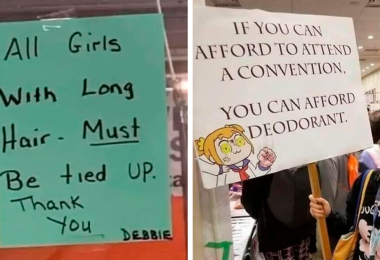 All Girls
With Long
Hair - Must
Be tied UP.
Thank
You
DEBBIE
IF YOU CAN
AFFORD TO ATTEND
A CONVENTION,
YOU CAN AFFORD
DEODORANT.